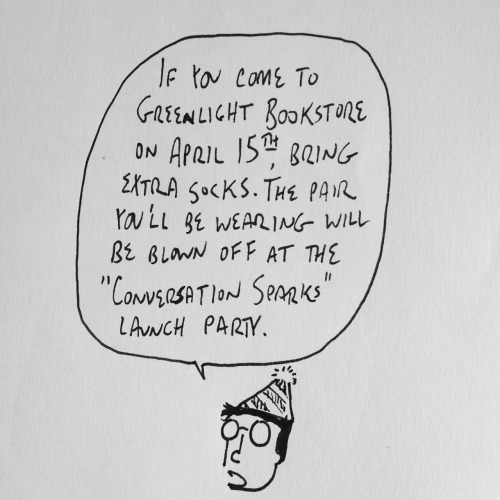 IF YOU COME TO
GREENLIGHT BOOKSTORE
ON APRIL 15TH, BRING
EXTRA SOCKS. THE PAIR
YOU'LL BE WEARING WILL
BE BLOWN OFF AT THE
"CONVERSATION SPARKS"
LAUNCH PARTY.